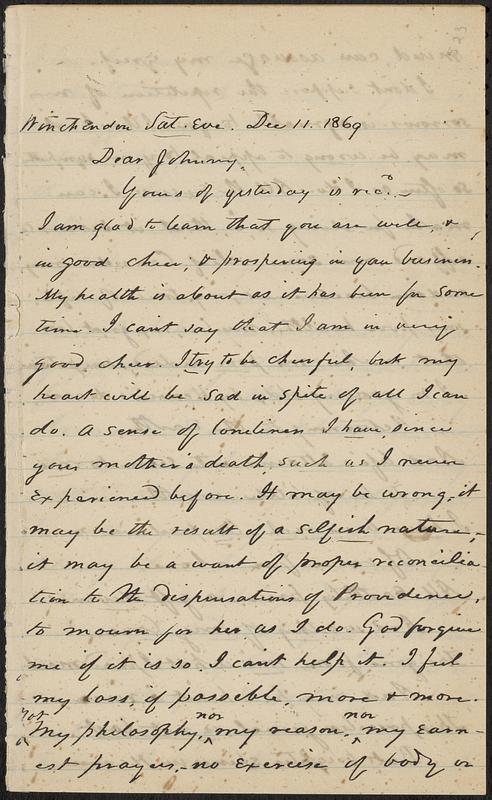 Winchendon Sat. Eve. Dec 11. 1869
Dear Johnny,
Yours of yesterday is recd. -
I am glad to learn that you are well, &
in good cheer, & prospering in your business.
My health is about as it has been for some
time. I can't say that I am in very
good cheer. I try to be cheerful, but my
heart will be sad in spite of all I can
do. A sense of loneliness I have, since
your mother's death, such as I never
experienced before. It may be wrong, it
may be the result of a selfish nature, -
it may be a want of proper reconcilia
tion to the dispensations of Providence,
to mourn for her as I do. God forgive
me if it is so. I can't help it. I feel
my loss, if possible, more & more.
Not my philosophy, nor my reason, nor my earn-
est prayers, - no exercise of body or